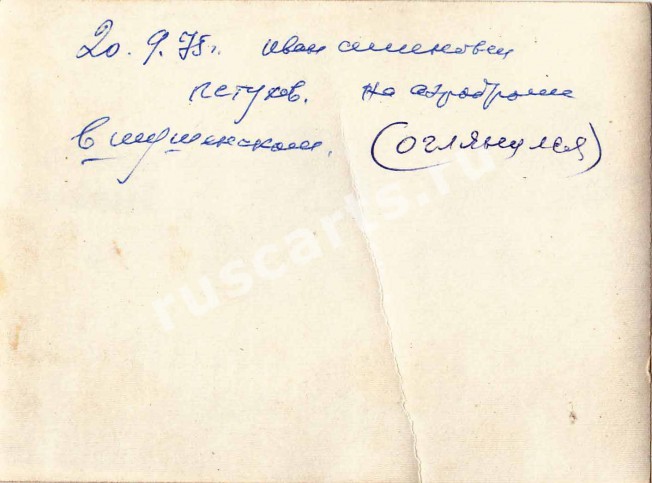 20. 9. 75г. иван семенович
петухов. на аэродроме
в шушенском. (оглянулся)
ruscarts.ru